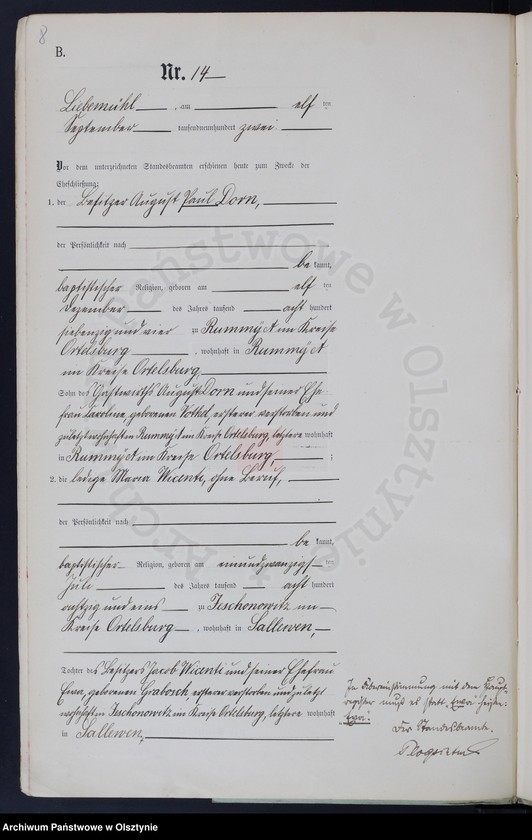 8
B.
Nr. 14
Liebemühl, am elf ten
September tausendneunhundert zwei
Vor dem unterzeichneten Standesbeamten erschienen heute zum Zwecke der
Eheschließung:
1. der Besitzer August Paul Dorn,
der Persönlichkeit nach
be kannt,
baptistischer Religion, geboren am elf ten
Dezember des Jahres tausend acht hundert
siebenzig und vier zu Rummy A im Kreise
Ortelsburg, wohnhaft in Rummy A
im Kreise Ortelsburg,
Sohn des Gastwirths August Dorn und seiner Ehe-
frau Caroline, geborenen, ersterer verstorben und
zuletzt wohnhaft in Rummy A im Kreise Ortelsburg, letztere wohnhaft
in Rummy A im Kreise Ortelsburg, ;
2. die ledige Maria Wicenti, ohne Beruf,
der Persönlichkeit nach
be kannt,
baptistischer Religion, geboren am einundzwanzigs ten
Juli des Jahres tausend acht hundert
achtzig und eins zu Jeschonowitz im
Kreise Ortelsburg, wohnhaft in Sallewen,
Tochter des Besitzers Jacob Wicenti und seiner Ehefrau
Ewa, geborenen, ersterer verstorben und zuletzt
wohnhaft in Jeschonowitz im Kreise Ortelsburg, letztere wohnhaft
in Sallewen,
In Übereinstimmung mit dem Haupt-
register muß es statt „Ewa" heißen
Der Standesbeamte.
Archiwum Państwowe w Olsztynie